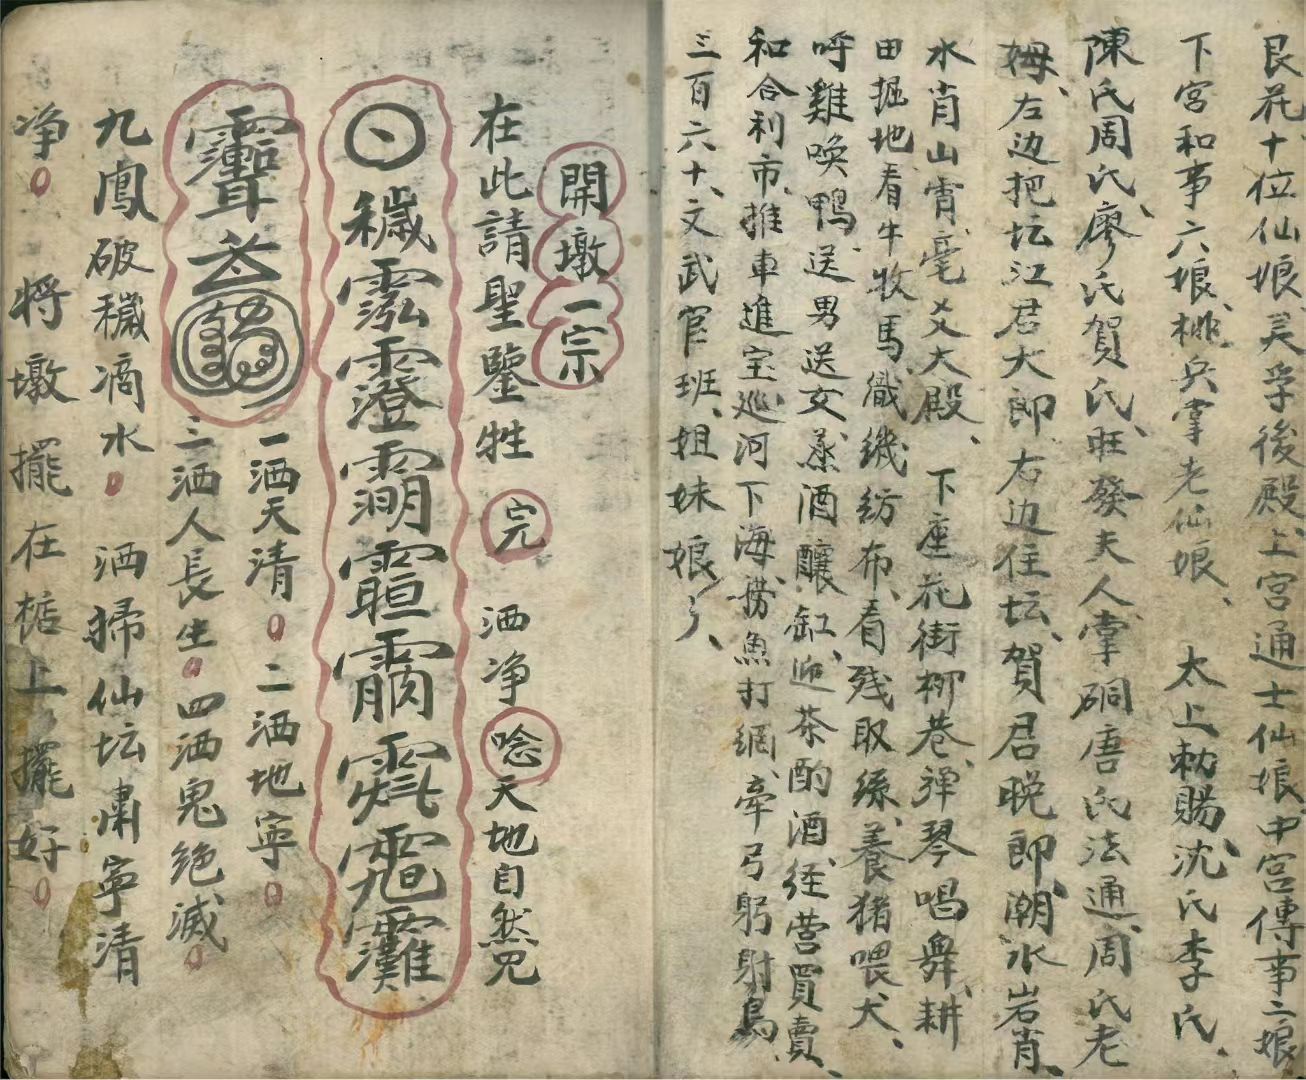 艮花十位仙娘、美孚後殿、上宮通士仙娘、中宮傳事二娘
下宮和事六娘、桃兵掌老仙娘、太上勅賜、沈氏李氏、
陳氏周氏、廖氏賀氏、旺發夫人掌硐唐氏法通、周氏老
姆、左边把坛江君大郎右边住坛、賀君晚郎、潮水岩肖、
水肖山霄毫爻大殿、下座花街柳巷、彈琴唱舞、耕
田掘地看牛牧馬、織纖紡布、看殘取絲、養猪喂犬、
呼雞喚鴨、送男送女、蒸酒釀缸、迎茶酌酒、经营買賣、
和合利市、推車進宝、巡河下海、撈魚打網、牽弓躬射鳥、
三百六十、文武官班、姐妹娘〃、
開墩一宗
在此請聖鑒牲 完 洒净 唸天地自然咒
穢
一洒天清。二洒地寧。
三洒人長生。四洒鬼绝滅。
九鳳破穢滴水。洒掃仙坛肅寧清
净。将墩擺在桩上擺好。